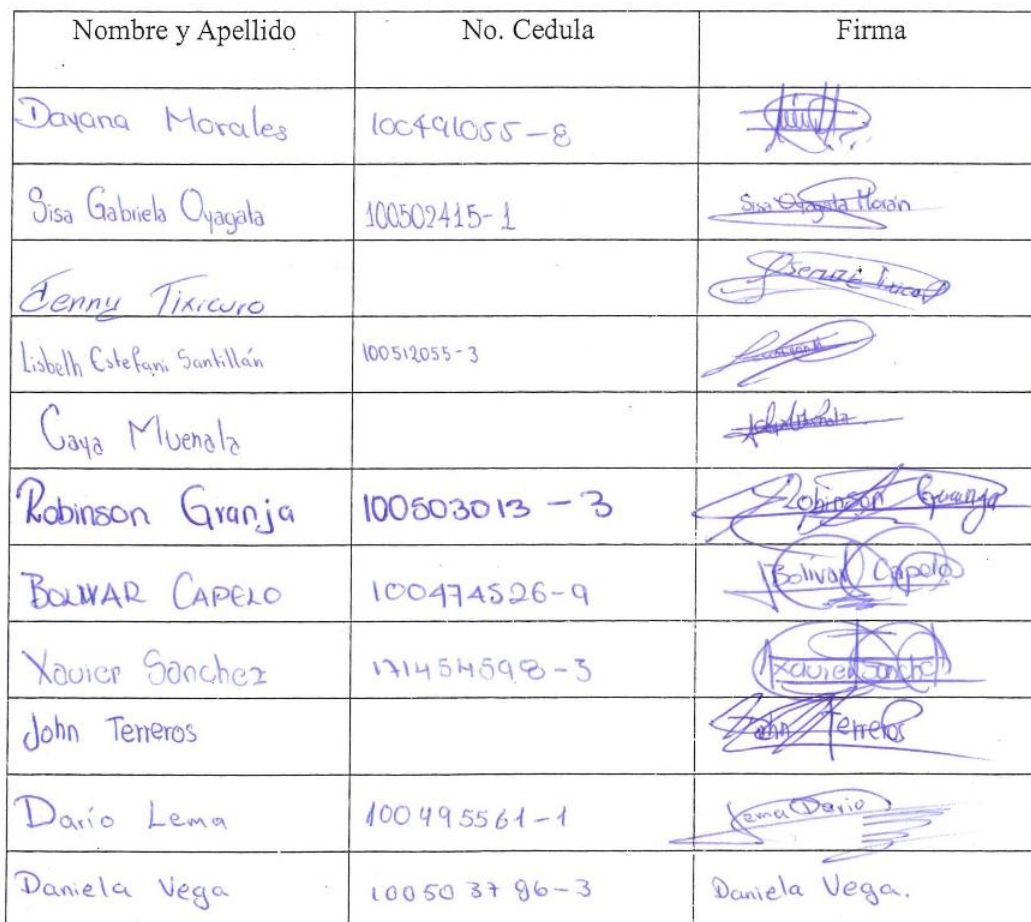 Nombre y Apellido No. Cedula Firma
Dayana Morales 100491055-8
Sisa Gabriela Oyagata 100502415-1 Sisa Oyagata Morán
Jenny Tixicuro
Lisbeth Estefani Santillán 100512055-3
Caya Muenala
Robinson Granja 100503013-3 Robinson Granja
BOLIVAR CAPELO 100474526-9 Bolivar Capelo
Xavier Sanchez 171454598-3 Xavier Sanchez
John Terreros John Terreros
Darío Lema 100495561-1 Lema Dario
Daniela Vega 100503786-3 Daniela Vega.